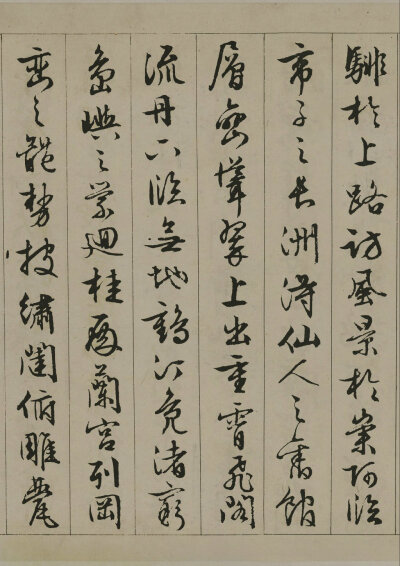 騑於上路訪風景於崇阿臨
帝子之長洲得仙人之舊館
層巒聳翠上出重霄飛閣
流丹下臨無地鶴汀鳧渚窮
島嶼之縈迴桂殿蘭宮列岡
巒之體勢披繡闥俯雕甍